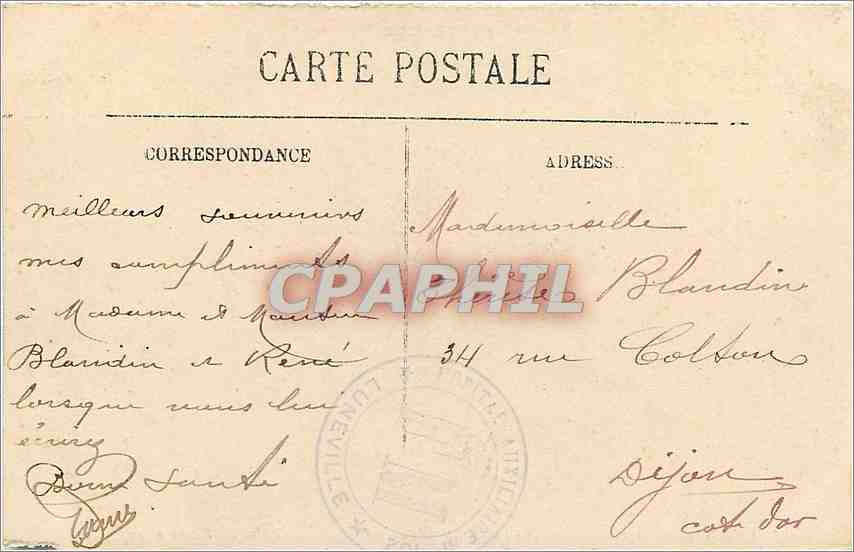 CARTE POSTALE
CORRESPONDANCE
ADRESS
meilleurs souvenirs
mes compliments
à Madame et
Blandin et René
lorsque vous lui
écurez
Bonne Santé
Mademoiselle
Thérèse Blandin
34 rue Colson
Dijon
cote dor
CPAPHIL
LUNEVILLE
AUXILIAIRE